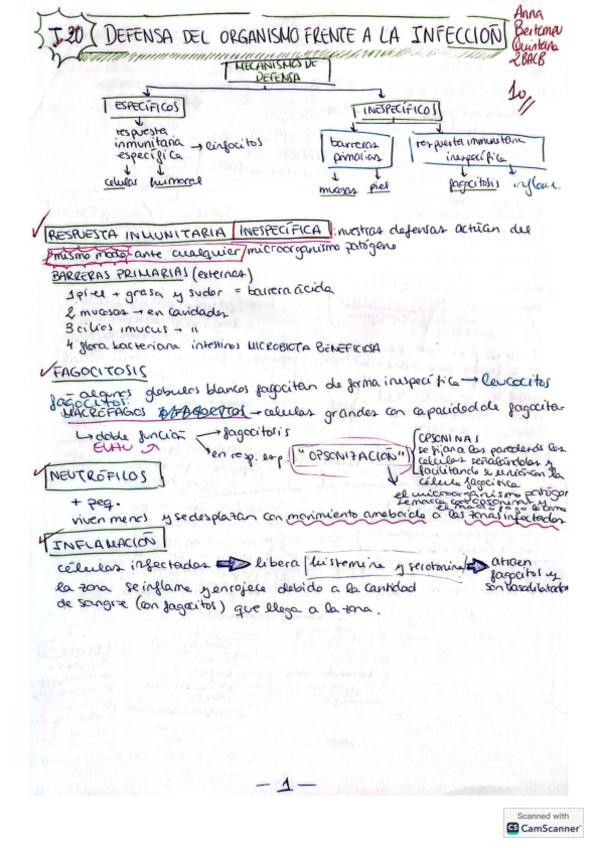 T.20 DEFENSA DEL ORGANISMO FRENTE A LA INFECCIÓN
Anna
Bertomeu
Quintana
2BACB
10
MECANISMOS DE
DEFENSA
ESPECÍFICOS
INESPECÍFICOS
respuesta
inmunitaria → linfocitos
específica
celular humoral
barreras
primarias
respuesta inmunitaria
inespecífica
mucosas piel
fagocitosis inflam.
RESPUESTA INMUNITARIA INESPECÍFICA : nuestras defensas actúan del
mismo modo ante cualquier microorganismo patógeno
BARRERAS PRIMARIAS (externas)
1 piel + grasa y sudor = barrera ácida
2 mucosas → en cavidades
3 cilios /mucus → "
4 flora bacteriana intestinos MICROBIOTA BENEFICIOSA
FAGOCITOSIS
- algunos glóbulos blancos fagocitan de forma inespecífica → leucocitos
fagocitos:
MACRÓFAGOS O FAGOCITOS → células grandes con capacidad de fagocitar
↳ doble función
fagocitosis
EVAU
en resp. esp. "OPSONIZACIÓN"
OPSONINAS
se fijan las paredes de las
células señalándolas y
facilitando su unión con la
célula fagocítica
el microorganismo patógeno
se marca con opsonina y
el macrófago lo come
NEUTRÓFILOS
+ peq.
viven menos y se desplazan con movimiento ameboide a las zonas infectadas
INFLAMACIÓN
células infectadas ⇒ libera histamina y serotonina ⇒ atraen
fagocitos y
son vasodilatador
la zona se inflama y enrojece debido a la cantidad
de sangre (con fagocitos) que llega a la zona.
- 1 -
Scanned with
CS CamScanner